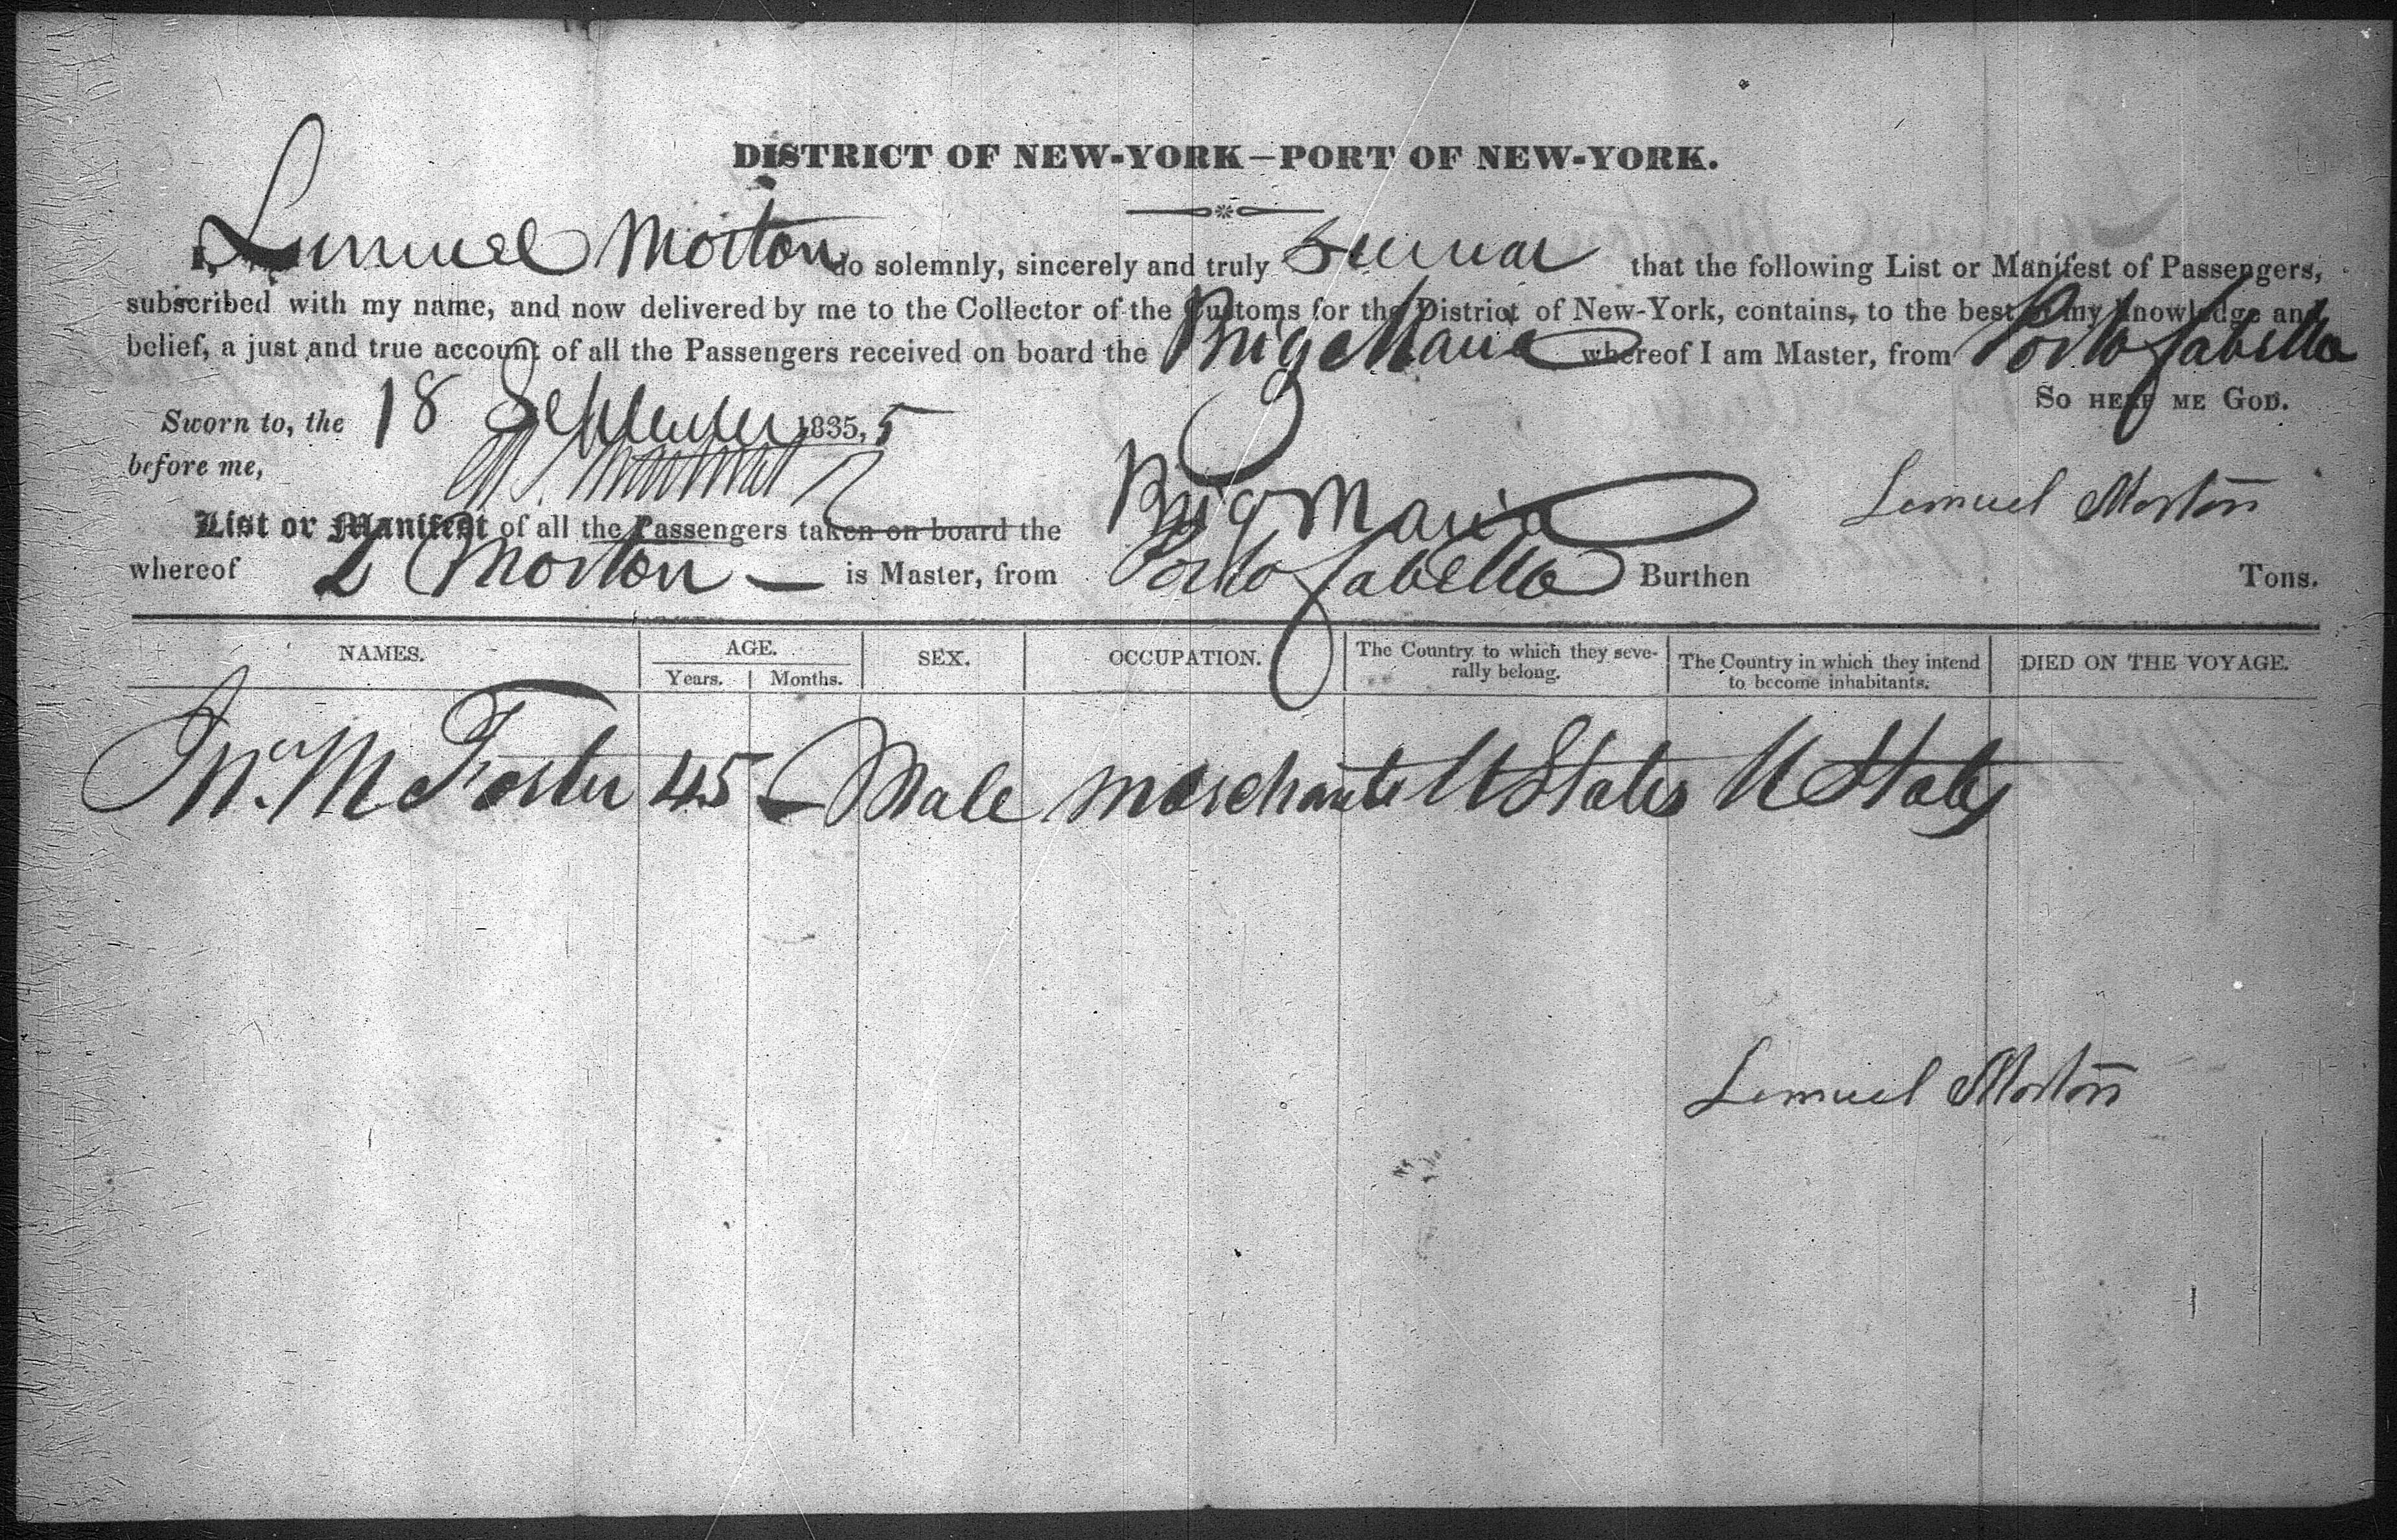 DISTRICT OF NEW-YORK—PORT OF NEW-YORK.
I, Lemuel Morton do solemnly, sincerely and truly swear that the following List or Manifest of Passengers,
subscribed with my name, and now delivered by me to the Collector of the Customs for the District of New-York, contains, to the best of my knowledge and
belief, a just and true account of all the Passengers received on board the Brig Maria whereof I am Master, from Porto Cabello
So help me God.
Sworn to, the 18 September 1835, 5
before me,
Lemuel Morton
List or Manifest of all the Passengers taken on board the Brig Maria
whereof L Morton — is Master, from Porto Cabello Burthen Tons.
NAMES. AGE. Years. Months. SEX. OCCUPATION. The Country to which they severally belong. The Country in which they intend to become inhabitants. DIED ON THE VOYAGE.
Wm M Foster 45 — Male merchant U States U States
Lemuel Morton